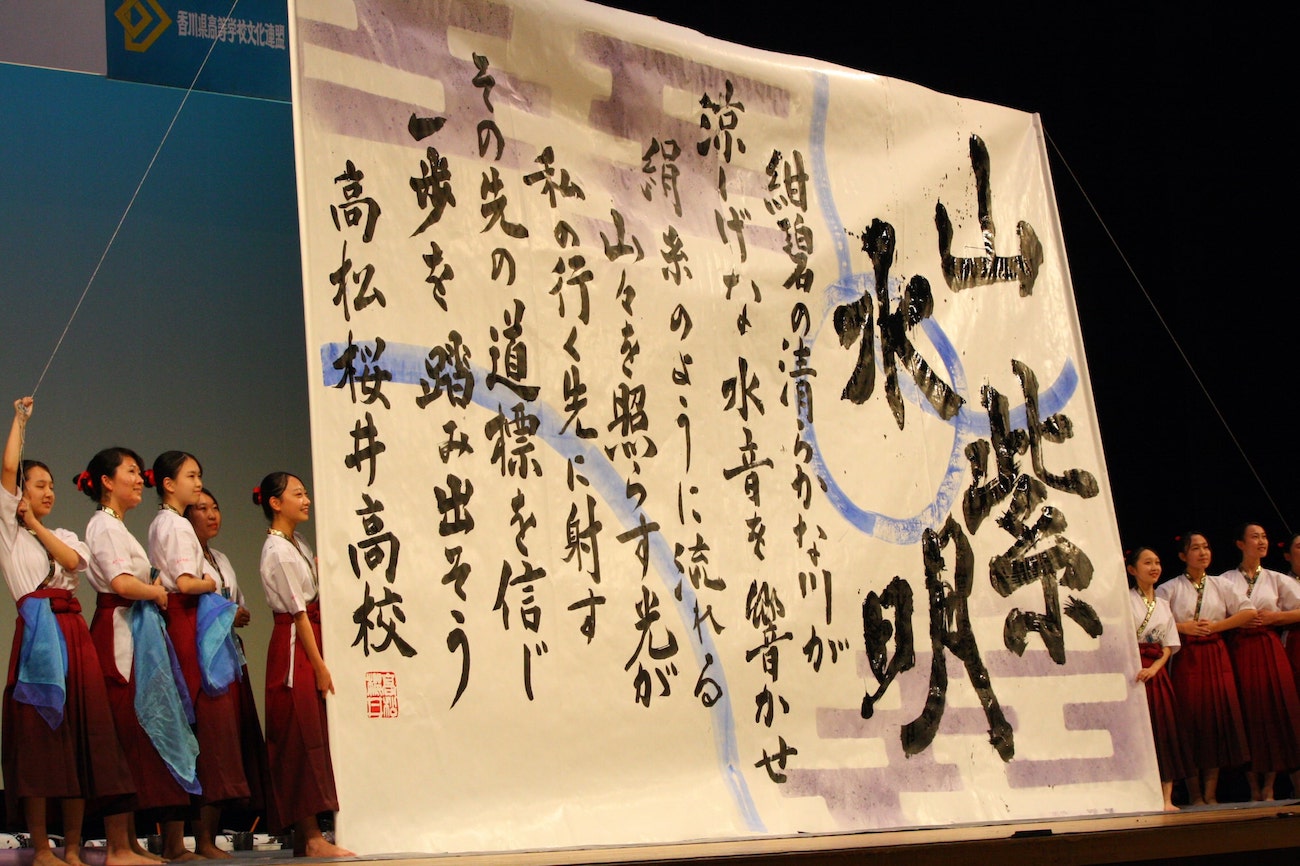 香川県高等学校文化連盟
山紫
水明
紺碧の清らかな川が
涼しげな水音を響かせ
絹糸のように流れる
山々を照らす光が
私の行く先に射す
その先の道標を信じ
一歩を踏み出そう
高松桜井高校